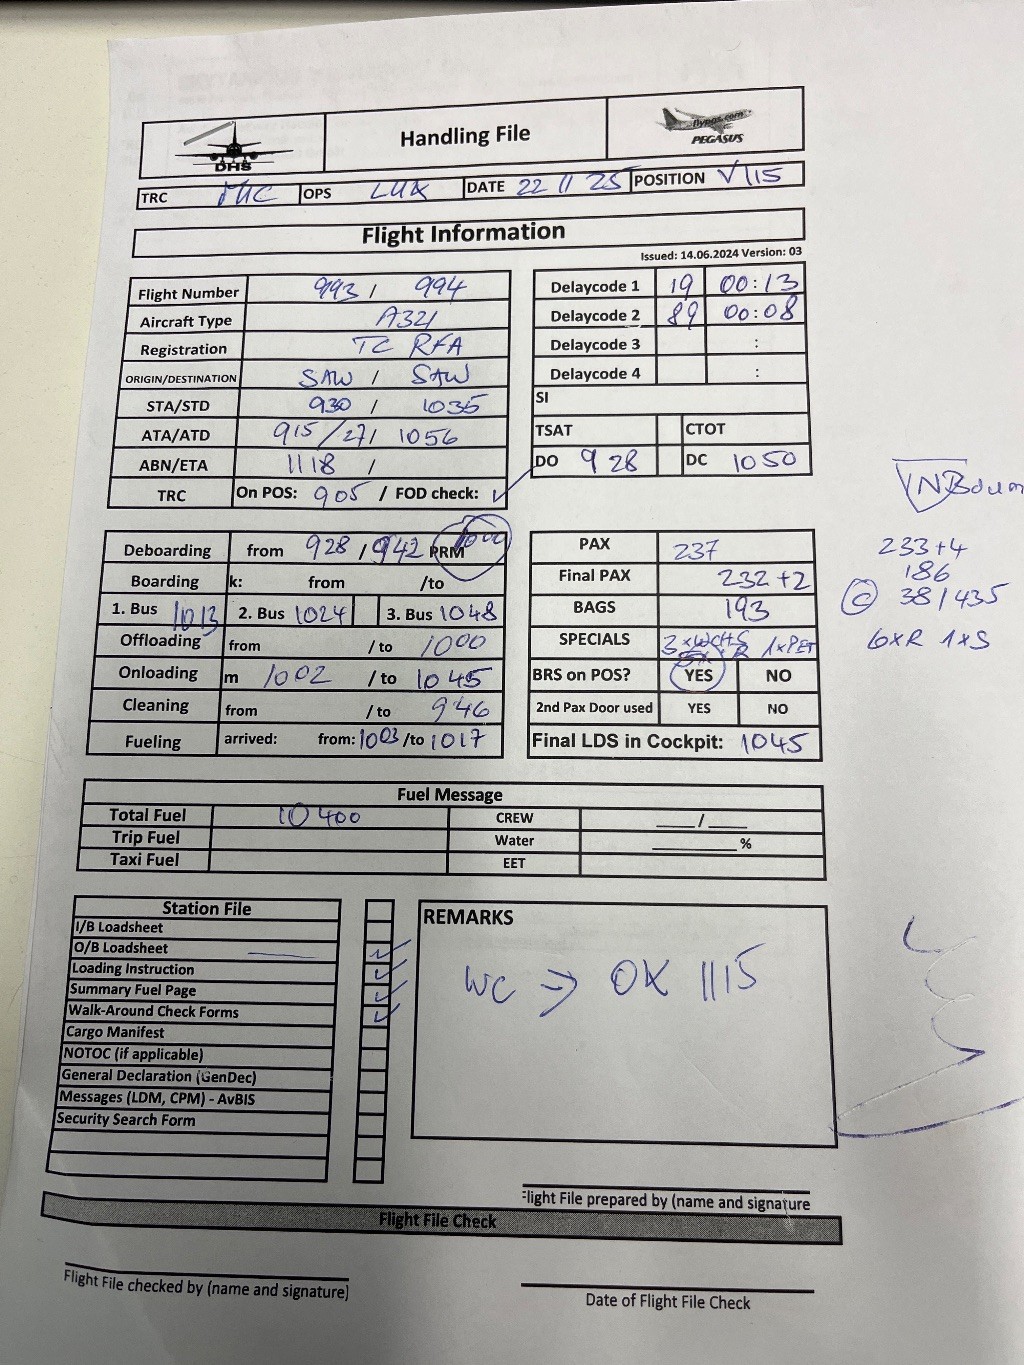 DHS
Handling File
flypgs.com
PEGASUS
TRC MIC OPS LUX DATE 22 11 25 POSITION V115
Flight Information
Issued: 14.06.2024 Version: 03
Flight Number 993 / 994
Aircraft Type A321
Registration TC RFA
ORIGIN/DESTINATION SAW / SAW
STA/STD 930 / 1035
ATA/ATD 915/27/ 1056
ABN/ETA 1118 /
TRC On POS: 905 / FOD check: ✓
Delaycode 1 19 00:13
Delaycode 2 89 00:08
Delaycode 3 :
Delaycode 4 :
SI
TSAT CTOT
DO 9 28 DC 1050
Deboarding from 928 / 942 PRM 1000
Boarding k: from /to
1. Bus 1013 2. Bus 1024 3. Bus 1048
Offloading from / to 1000
Onloading m 1002 / to 1045
Cleaning from / to 946
Fueling arrived: from: 1003 /to 1017
PAX 237
Final PAX 232 +2
BAGS 193
SPECIALS 3xWCHS R 1xPET
BRS on POS? YES NO
2nd Pax Door used YES NO
Final LDS in Cockpit: 1045
INBoun
233+4
186
C 38/435
6xR 1xS
Fuel Message
Total Fuel 10400 CREW ___/___
Trip Fuel Water ______%
Taxi Fuel EET
Station File
I/B Loadsheet
O/B Loadsheet ✓
Loading Instruction ✓
Summary Fuel Page ✓
Walk-Around Check Forms ✓
Cargo Manifest
NOTOC (if applicable)
General Declaration (GenDec)
Messages (LDM, CPM) - AvBIS
Security Search Form
REMARKS
WC → OK 1115
Flight File prepared by (name and signature
Flight File Check
Flight File checked by (name and signature)
Date of Flight File Check